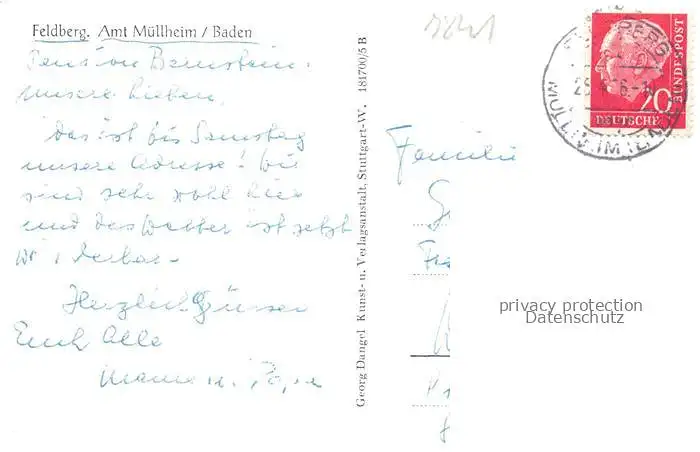 Feldberg. Amt Müllheim / Baden
Pension Bernstein.
Unsere Lieben,
Das ist bis Samstag
unsere Adresse! Wir
sind sehr wohl hier
und das Wetter ist jetzt
wunderbar -
Herzlich Grüssen
Euch Alle
Mama u.
Georg Dangel Kunst- u. Verlagsanstalt, Stuttgart-W. 181700/5 B
5841
DEUTSCHE
BUNDESPOST
20
MÜLLHEIM
Familie
privacy protection
Datenschutz